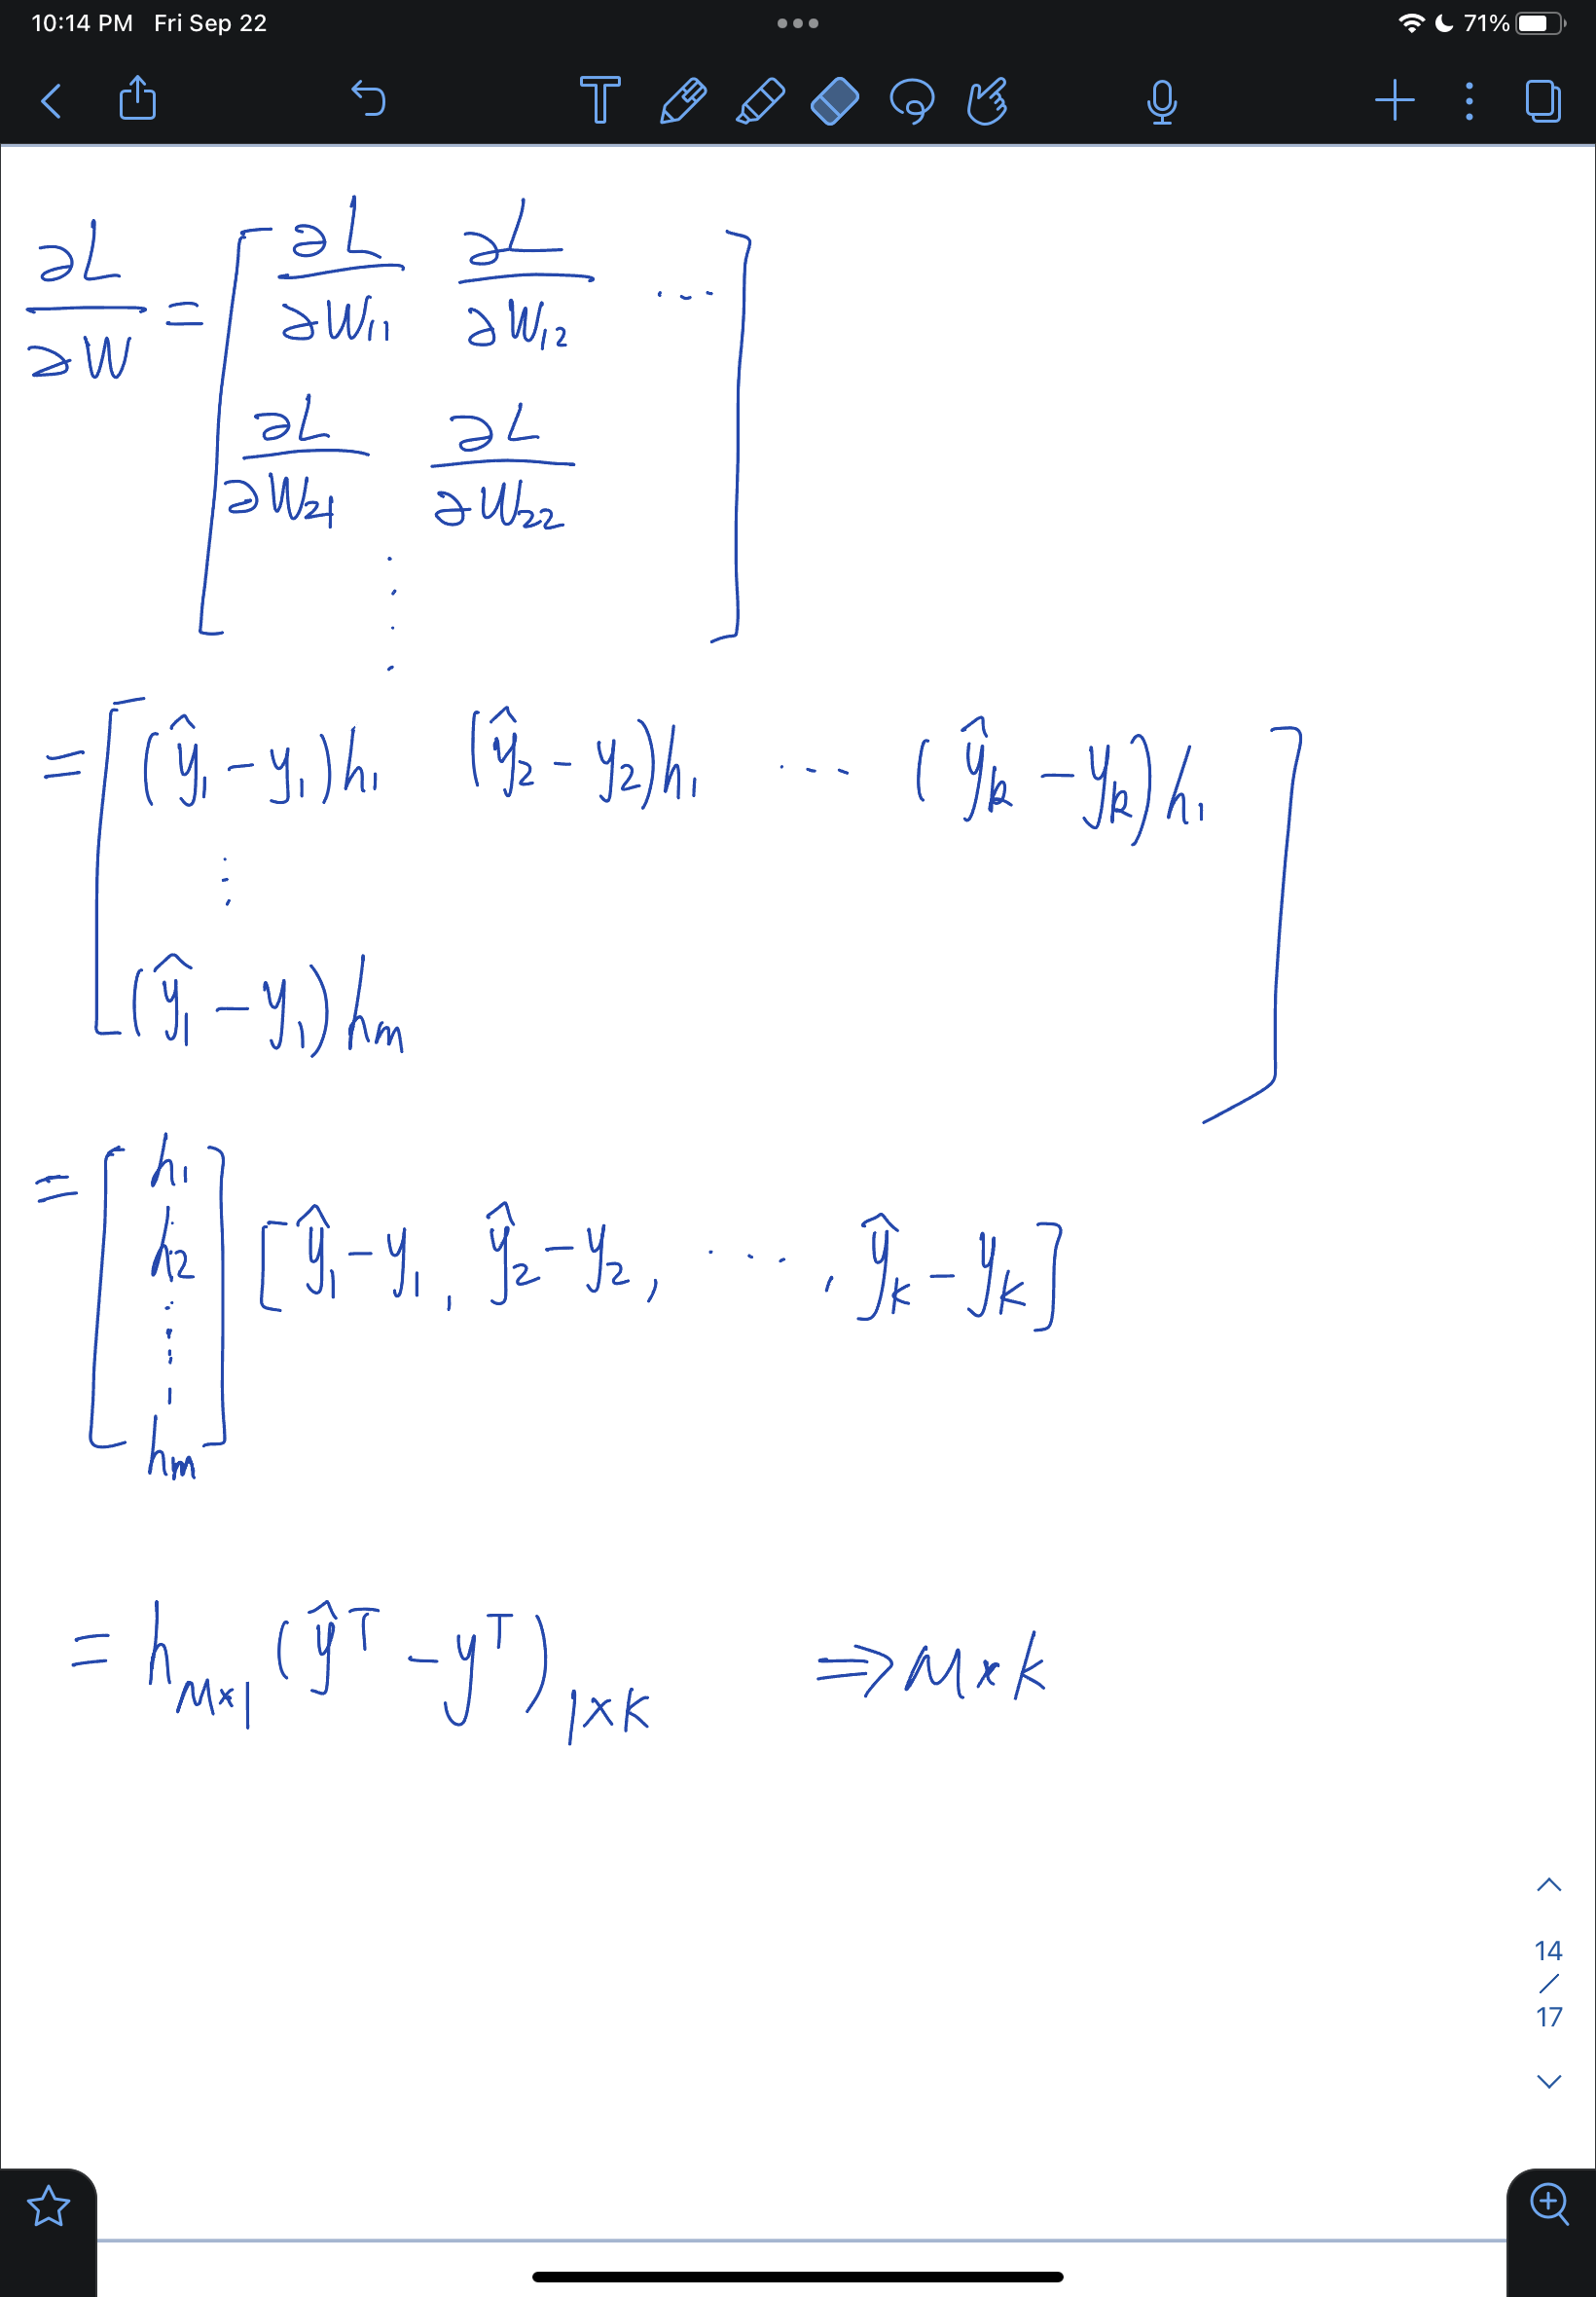 10:14 PM Fri Sep 22 71%
∂L/∂W = [ ∂L/∂W₁₁ ∂L/∂W₁₂ ...
∂L/∂W₂₁ ∂L/∂W₂₂
⋮ ]
= [ (ŷ₁ − y₁)h₁ (ŷ₂ − y₂)h₁ ... (ŷₖ − yₖ)h₁
⋮
(ŷ₁ − y₁)hₘ ]
= [ h₁ h₂ ⋮ hₘ ] [ŷ₁ − y₁, ŷ₂ − y₂, ... , ŷₖ − yₖ]
= h_{M×1} (ŷᵀ − yᵀ)_{1×K} ⇒ M×K
14
/
17